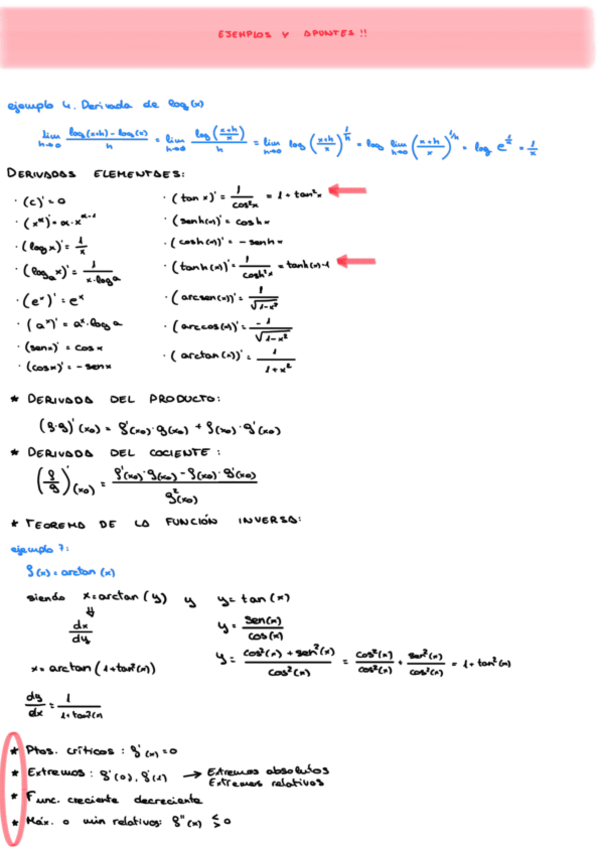 EJEMPLOS Y APUNTES !!
ejemplo 4. Derivada de log(x)
lim h→0 log(x+h) - log(x) / h = lim h→0 log(x+h/x) / h = lim h→0 log (x+h/x)^1/h = log lim h→0 (x+h/x)^1/h = log e^1/x = 1/x
DERIVADAS ELEMENTAES:
· (c)' = 0
· (x^α)' = α·x^α-1
· (log x)' = 1/x
· (log_a x)' = 1/x·log a
· (e^x)' = e^x
· (a^x)' = a^x·log a
· (sen x)' = cos x
· (cos x)' = - sen x
· (tan x)' = 1/cos²x = 1 + tan²x
· (senh(x))' = cosh x
· (cosh(x))' = - senh x
· (tanh(x))' = 1/cosh²x = tanh(x)-1
· (arcsen(x))' = 1/√1-x²
· (arccos(x))' = -1/√1-x²
· (arctan(x))' = 1/1+x²
* DERIVADA DEL PRODUCTO:
(f·g)'(x0) = f'(x0)·g(x0) + f(x0)·g'(x0)
* DERIVADA DEL COCIENTE:
(f/g)'(x0) = f'(x0)·g(x0) - f(x0)·g'(x0) / g²(x0)
* TEOREMA DE LA FUNCIÓN INVERSA:
ejemplo 7:
f(x) = arctan(x)
siendo x = arctan(y) y y = tan(x)
⇓
dx/dy
y = sen(x)/cos(x)
y = cos²(x) + sen²(x) / cos²(x) = cos²(x)/cos²(x) + sen²(x)/cos²(x) = 1 + tan²(x)
x = arctan(1+tan²(x))
dy/dx = 1/1+tan²(x)
* Ptos. críticos : f'(x) = 0
* Extremos : f'(0), f'(1) → Extremos absolutos
Extremos relativos
* Func. creciente decreciente
* Máx. o mín relativos: f''(x) ≶ 0